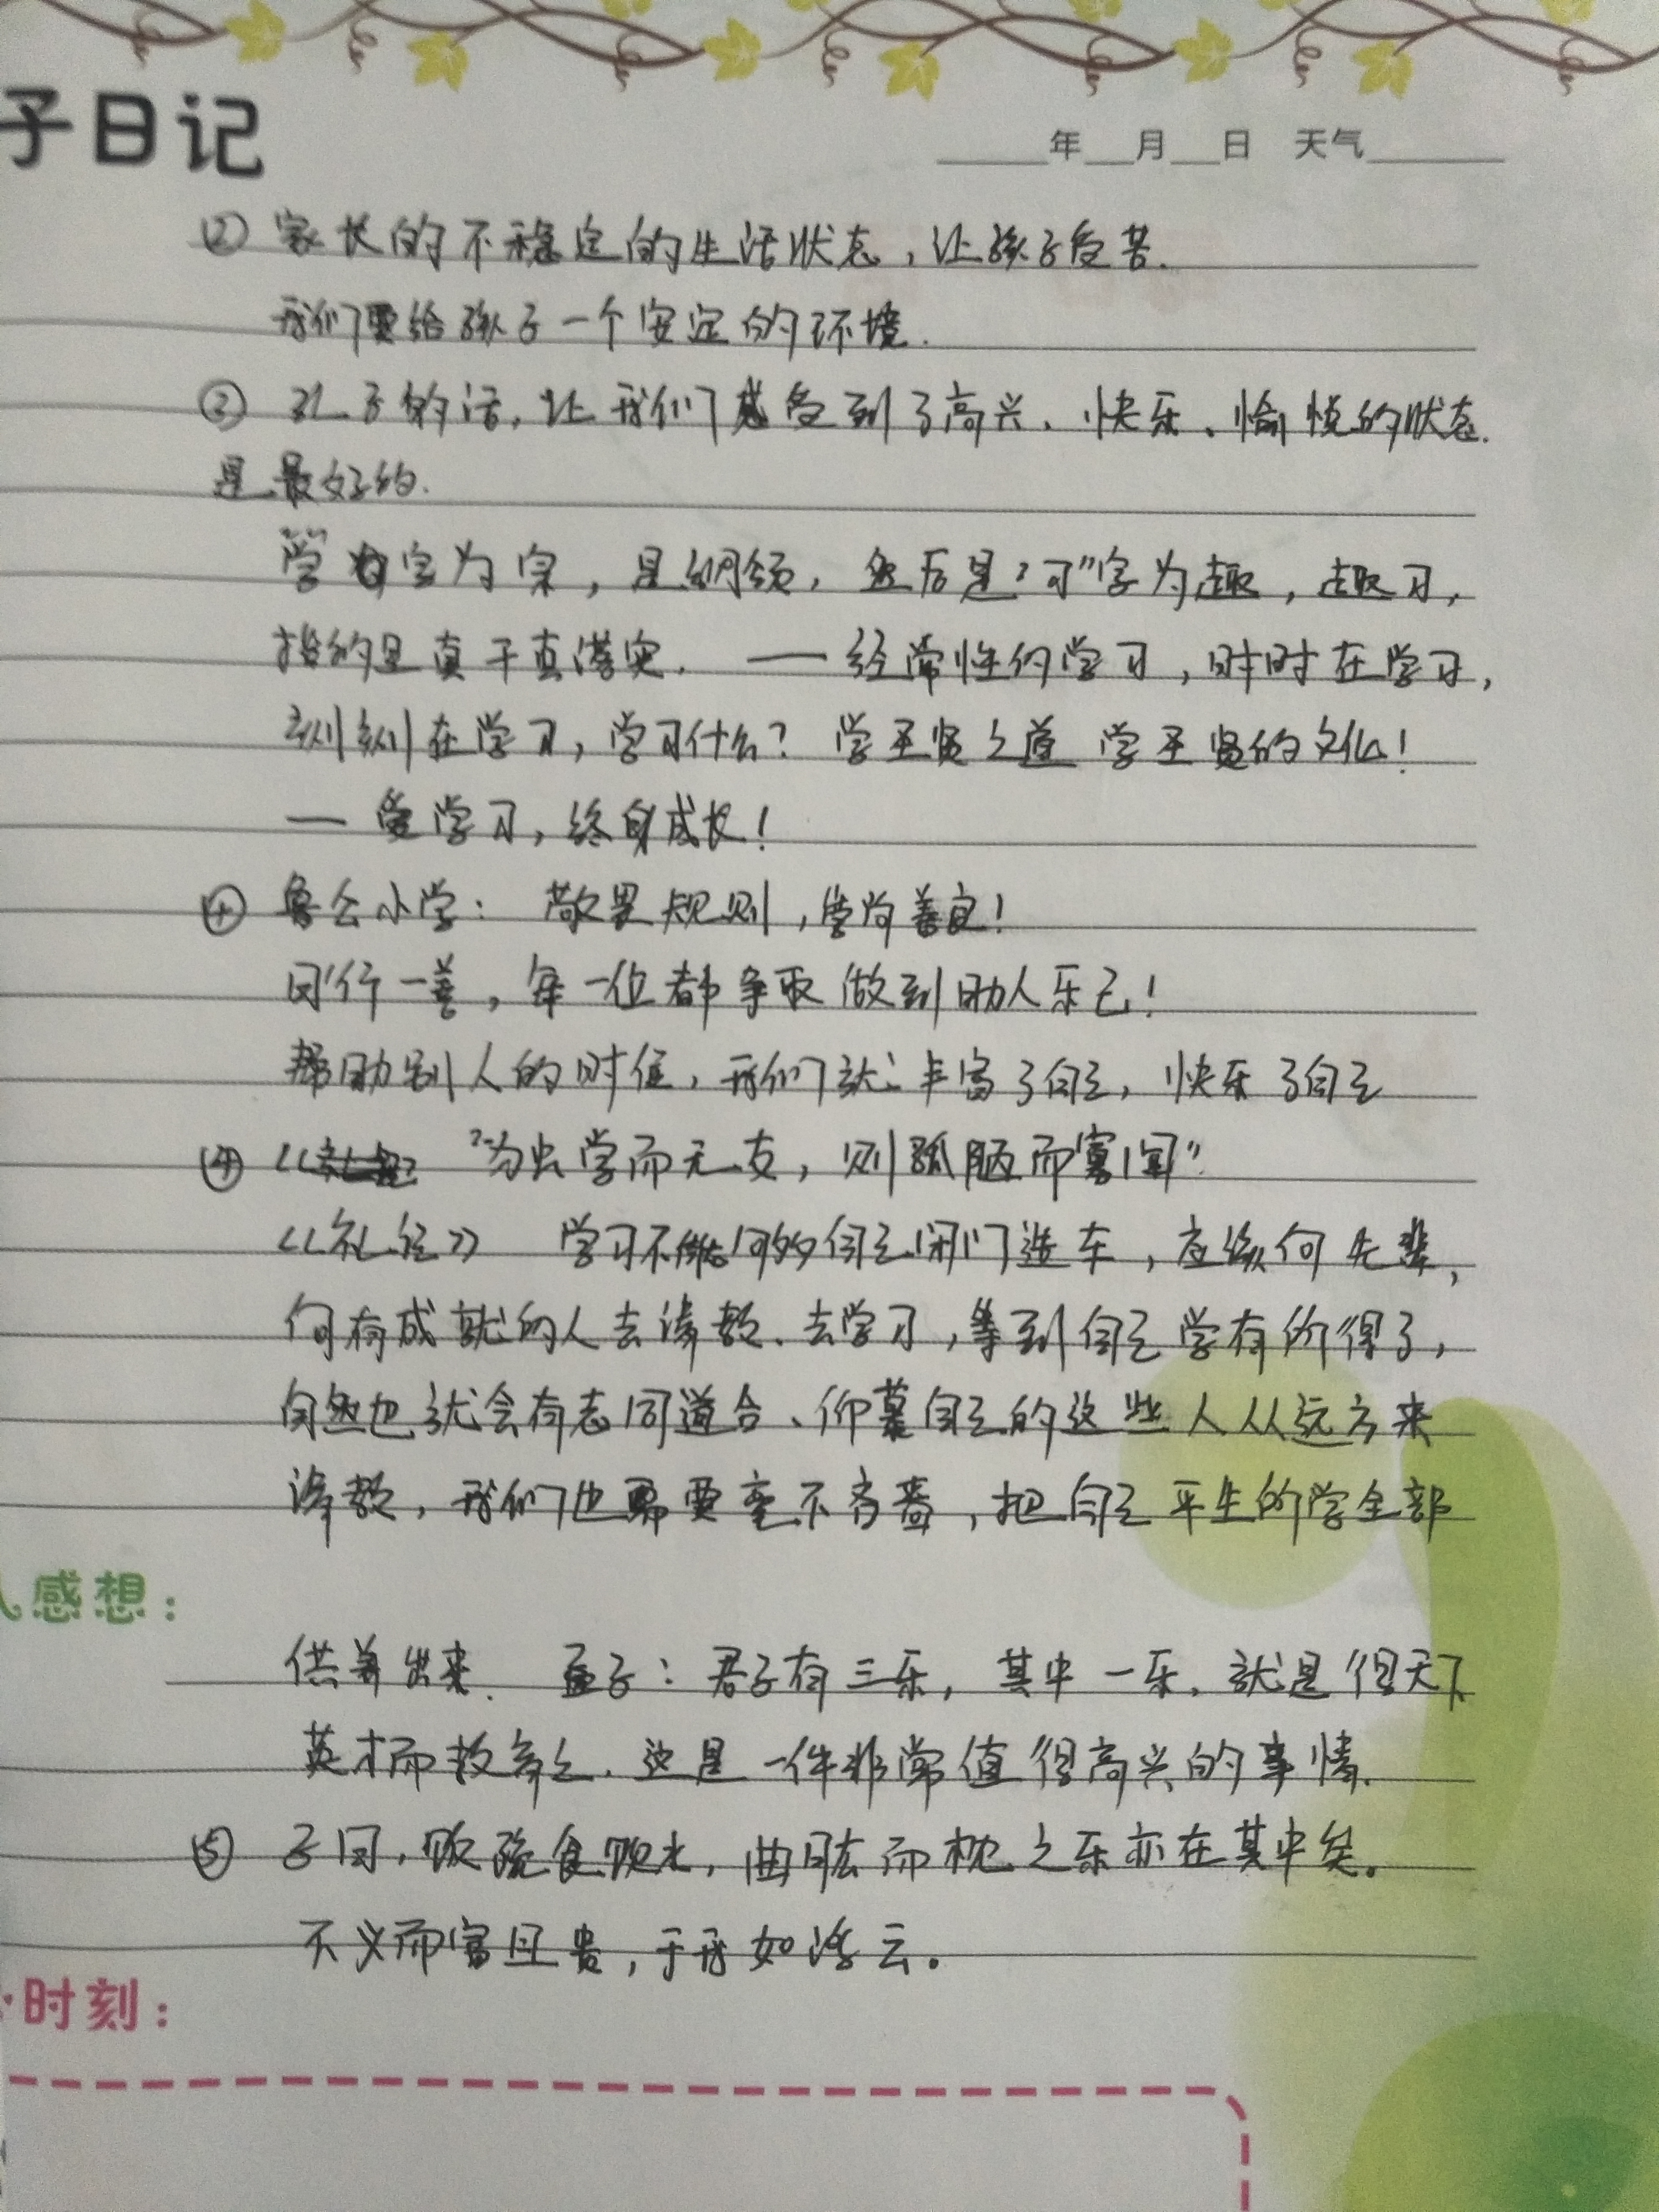 子日记
年 月 日 天气
② 家长的不稳定的生活状态，让孩子受苦.
我们要给孩子一个安定的环境.
③ 孔子的话，让我们感受到了高兴、快乐、愉悦的状态.
是最好的.
学字为宗，是纲领，然后是"习"字为趣，趣习，
指的是真干真落实. — 经常性的学习，时时在学习，
刻刻在学习，学习什么？学圣贤之道 学圣贤的文化！
— 爱学习，终身成长！
④ 鲁公小学：敬畏规则，崇尚善良！
日行一善，每一位都争取做到助人乐己！
帮助别人的时候，我们就丰富了自己，快乐了自己
④ "独学而无友，则孤陋而寡闻"
《礼记》 学习不能自己闭门造车，应该向先辈，
向有成就的人去请教、去学习，等到自己学有所得了，
自然也就会有志同道合、仰慕自己的这些人从远方来
请教，我们也需要毫不吝啬，把自己平生的学全部
人感想：
供养出来. 孟子：君子有三乐，其中一乐，就是得天下
英才而教育之，这是一件非常值得高兴的事情.
⑤ 子曰，饭疏食饮水，曲肱而枕之乐亦在其中矣。
不义而富且贵，于我如浮云。
时刻：